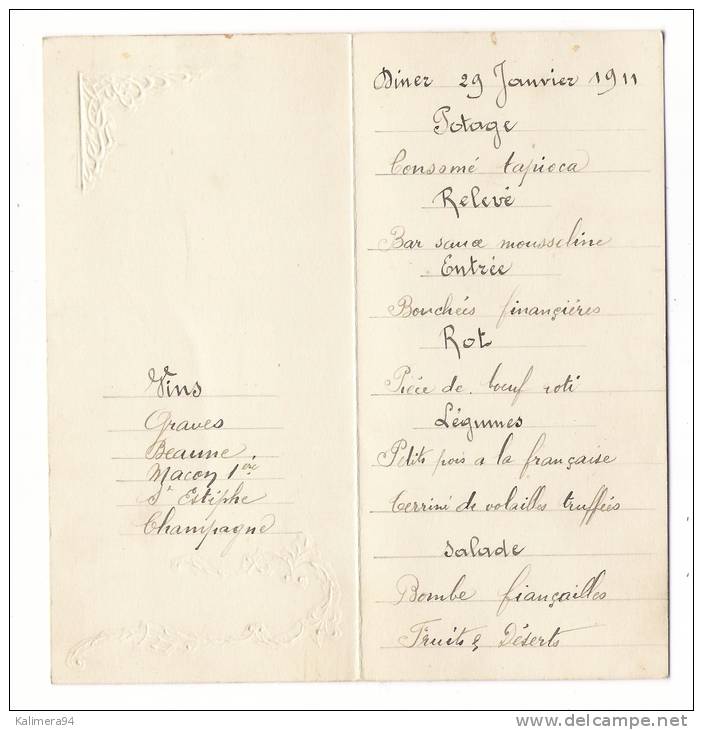 Vins
Graves
Beaune
Macon 1ère
St Estiphe
Champagne
Diner 29 Janvier 1911
Potage
Consomé tapioca
Relevé
Bar sauce mousseline
Entrée
Bouchées finançiéres
Rot
Piéce de boeuf roti
Légumes
Petits pois a la française
Terrine de volailles truffées
Salade
Bombe fiançailles
Fruits & Déserts
Kalimera94
www.delcampe.net